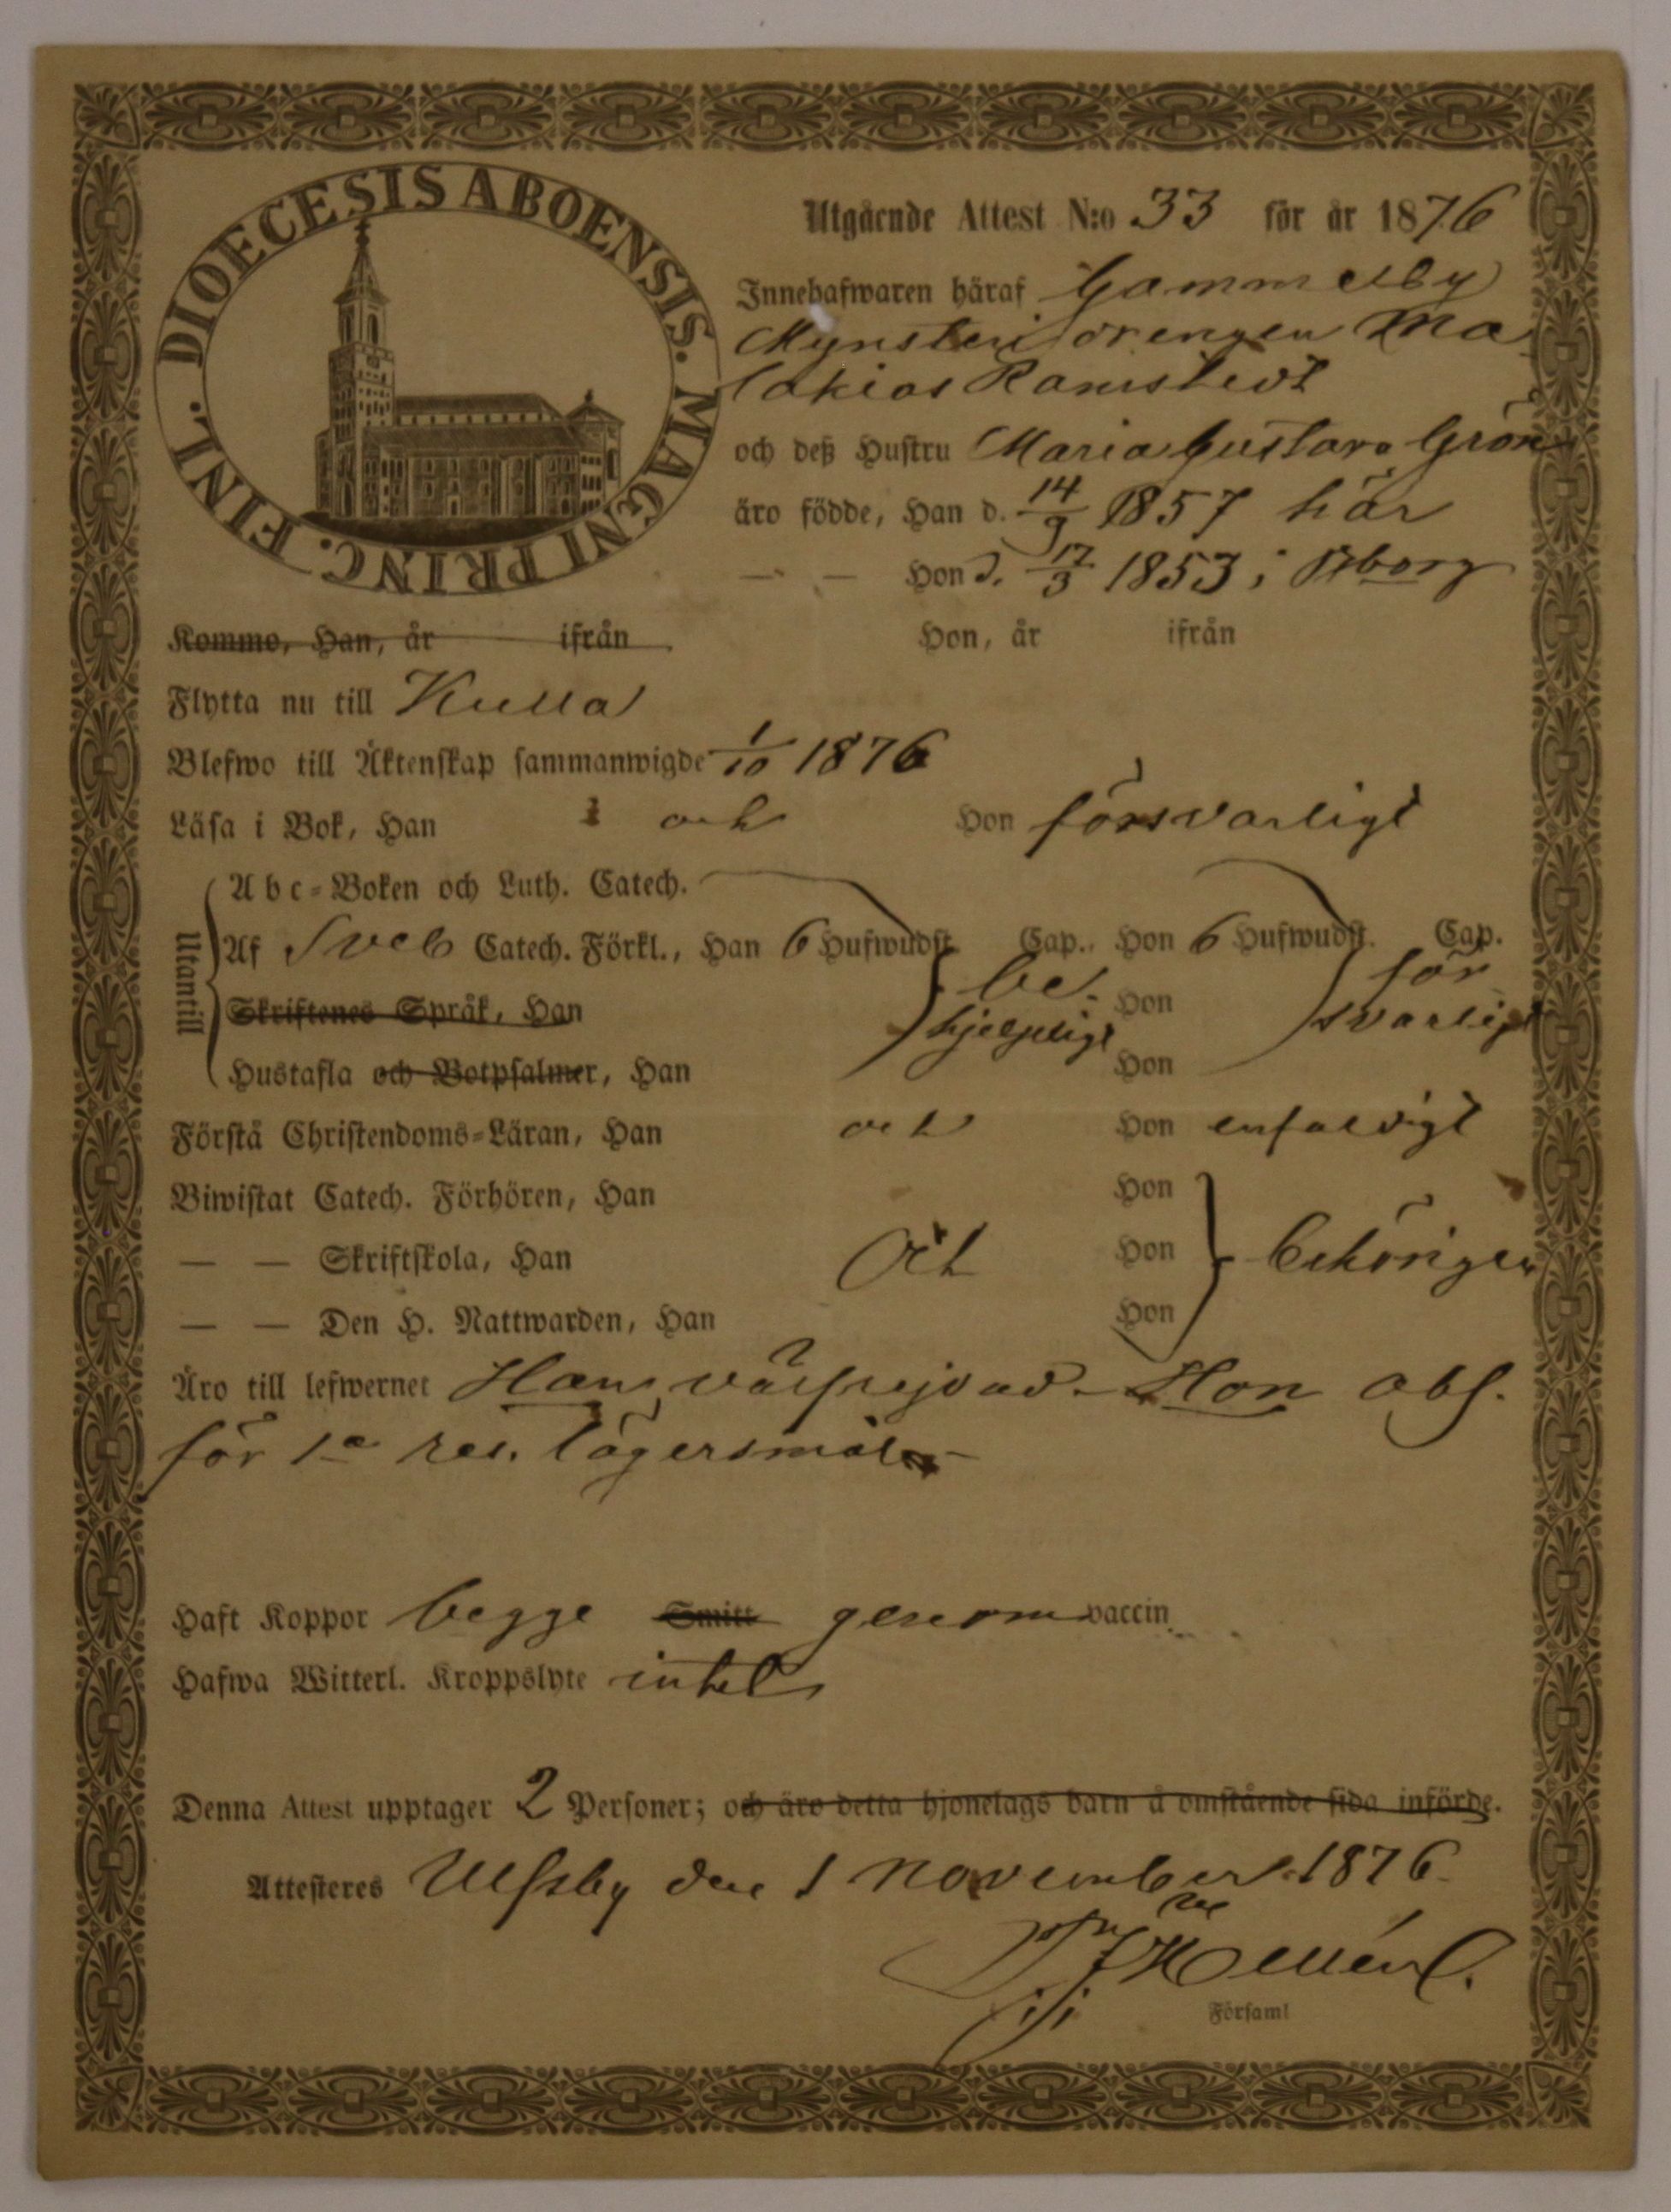 DIOECESIS ABOENSIS. MAGNI PRINC. FINL.
Utgående Attest N:o 33 för år 1876
Innehafwaren häraf Gammelby
drengen Ma
lakias Ramstedt
och deß Hustru Maria Gustava Grön
äro födde, Han d. 14/9 1857 här
— — Hon d. 17/3 1853 i Åborg
Kommo, Han, år ifrån Hon, år ifrån
Flytta nu till Kulla
Blefwo till Äktenskap sammanwigde 1/10 1876
Läsa i Bok, Han och Hon försvarligt
Utantill
Abc-Boken och Luth. Catech.
Af Sveb Catech. Förkl., Han 6 Hufwudst. Cap., Hon 6 Hufwudst. Cap.
be- för
Skriftenes Språk, Han hjelpligt Hon svarligt
Hustafla och Botpsalmer, Han Hon
Förstå Christendoms-Läran, Han och Hon enfaldigt
Biwistat Catech. Förhören, Han Hon
— — Skriftskola, Han och Hon behörigen
— — Den H. Nattwarden, Han Hon
Äro till lefwernet Han välfrejdad. Hon abs.
för 1a res. lägersmål
Haft Koppor begge Smitt genom vaccin.
Hafwa Witterl. Kroppslyte intet
Denna Attest upptager 2 Personer; och äro detta hjonelags barn å omstående sida införde.
Attesteres Ulfsby den 1 November 1876
Hellén
Församl